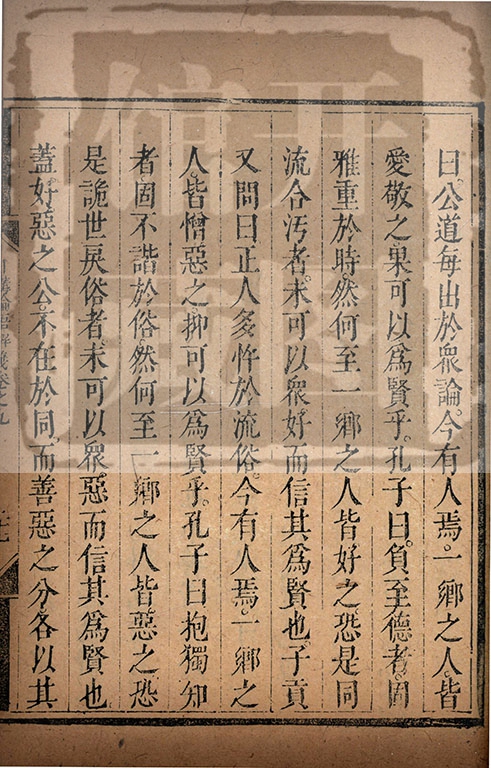 曰公道每出於衆論。今有人焉。一鄉之人。皆
愛敬之。果可以爲賢乎。孔子曰。負至德者。固
雅重於時。然何至一鄉之人皆好之。恐是同
流合汚者。未可以衆好而信其爲賢也。子貢
又問曰。正人多忤於流俗。今有人焉。一鄉之
人。皆憎惡之。抑可以爲賢乎。孔子曰。抱獨知
者。固不諧於俗。然何至一鄉之人皆惡之。恐
是詭世戾俗者。未可以衆惡而信其爲賢也
蓋好惡之公。不在於同。而善惡之分。各以其